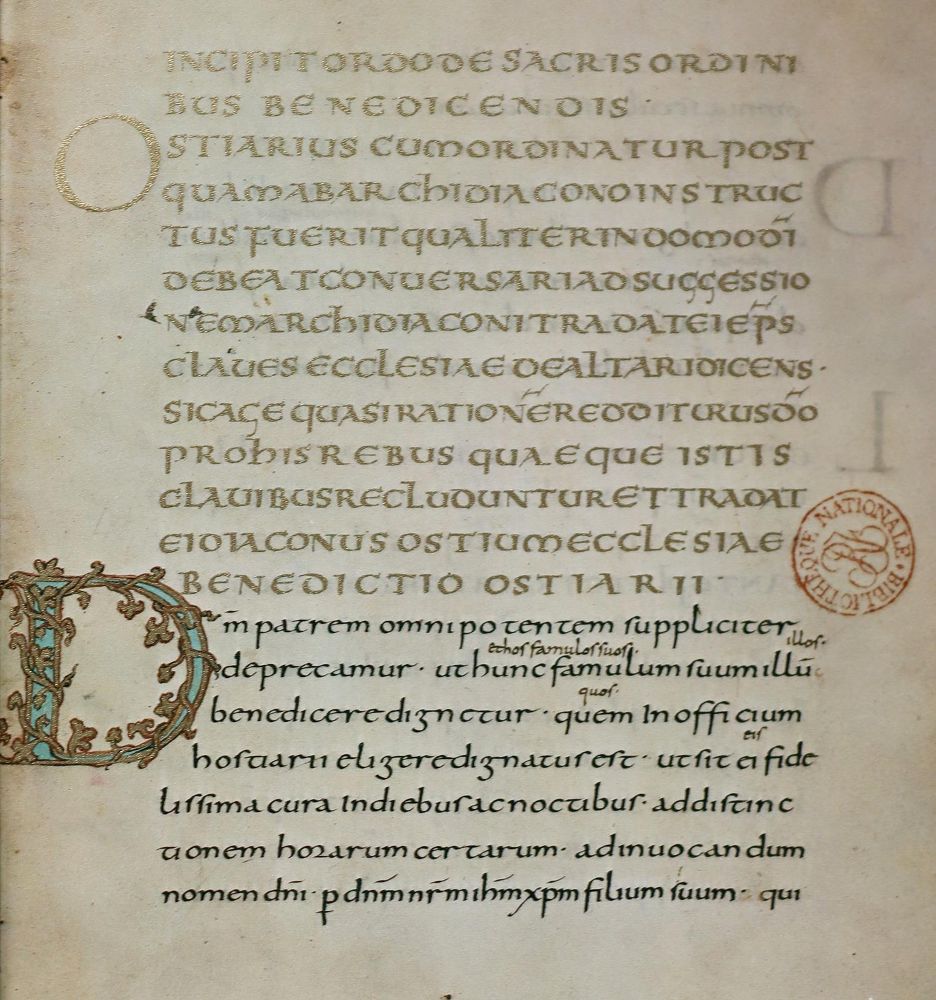 INCIPIT ORDO DE SACRIS ORDINI
BUS BENEDICENDIS·
OSTIARIUS CUM ORDINATUR POST
QUAM AB ARCHIDIACONO INSTRUC
TUS FUERIT QUALITER IN DOMO D͞I
DEBEAT CONUERSARI AD SUGGESSIO
NEM ARCHIDIACONI TRADAT EI EP̄S
CLAUES ECCLESIAE DE ALTARI DICENS·
SIC AGE QUASI RATIONĒ REDDITURUS D͞O
PRO HIS REBUS QUAEQUE ISTIS
CLAUIBUS RECLUDUNTUR ET TRADAT
EI DIACONUS OSTIUM ECCLESIAE
BENEDICTIO OSTIARII·
Dm̄ patrem omnipotentem suppliciter
et hos famulos suos· illos·
deprecamur· ut hunc famulum suum illū
quos·
benedicere dignetur· quem In officium
eis
hostiarii eligere dignatus est· ut sit ei fide
lissima cura In diebus ac noctibus· ad distinc
tionem horarum certarum· ad inuocandum
nomen dn̄i· p̱ dn̄m nr̄m ih̄m xp̄m filium suum· qui
BIBLIOTHÈQUE NATIONALE